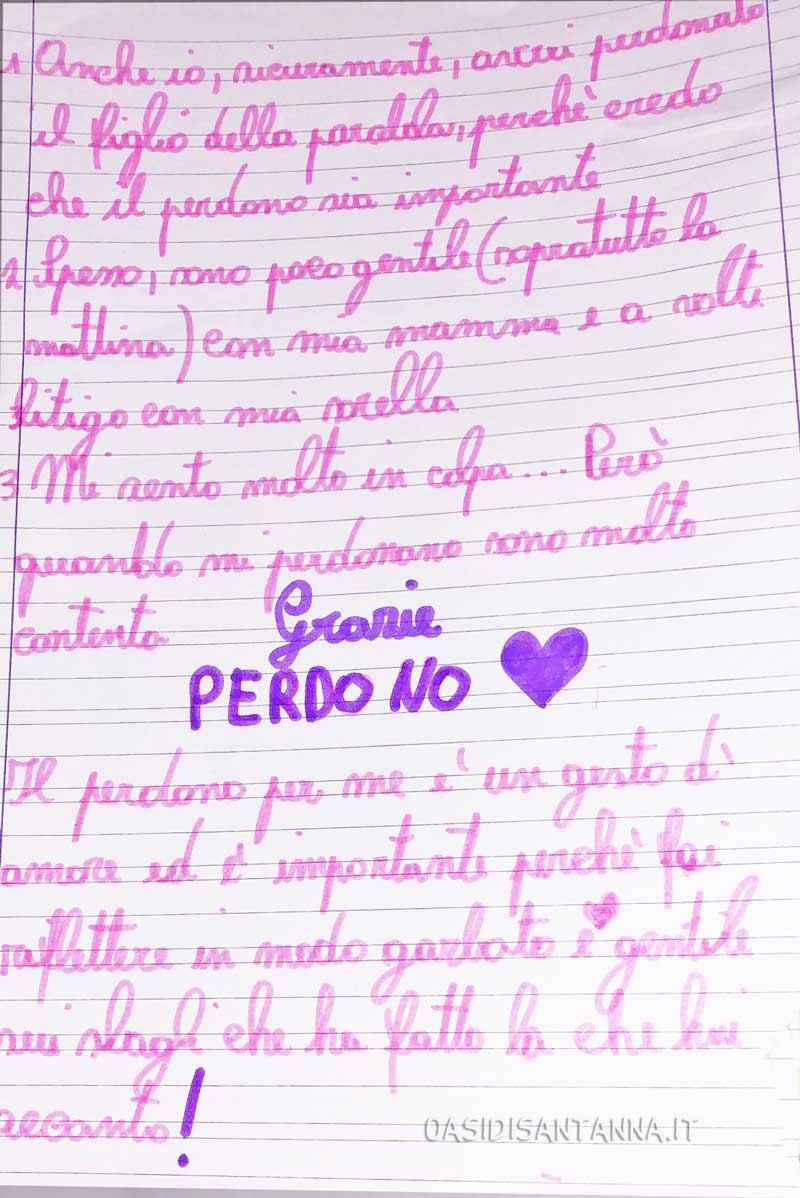 1 Anche io, sicuramente, avrei perdonato
il figlio della parabola, perchè credo
che il perdono sia importante
2 Spesso, sono poco gentile (sopratutto la
mattina) con mia mamma e a volte
litigo con mia sorella
3 Mi sento molto in colpa... Però
quando mi perdonano sono molto
contenta
Grazie
PERDONO
Il perdono per me è un gesto d'
amore ed è importante perchè fai
riflettere in modo garbato e gentile
sui sbagli che ha fatto la che hai
accanto!
OASIDISANTANNA.IT